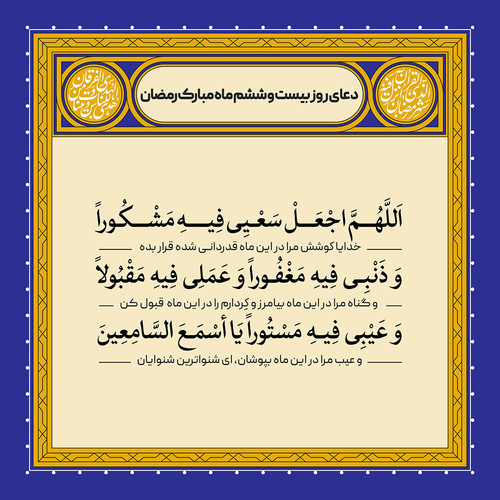 دعای روز بیست و ششم ماه مبارک رمضان
اَللَّهُمَّ اجْعَلْ سَعْیِی فِیهِ مَشْکُوراً
خدایا کوشش مرا در این ماه قدردانی شده قرار بده
وَ ذَنْبِی فِیهِ مَغْفُوراً وَ عَمَلِی فِیهِ مَقْبُولاً
و گناه مرا در این ماه بیامرز و کردارم را در این ماه قبول کن
وَ عَیْبِی فِیهِ مَسْتُوراً یَا أَسْمَعَ السَّامِعِینَ
و عیب مرا در این ماه بپوشان، ای شنواترین شنوایان